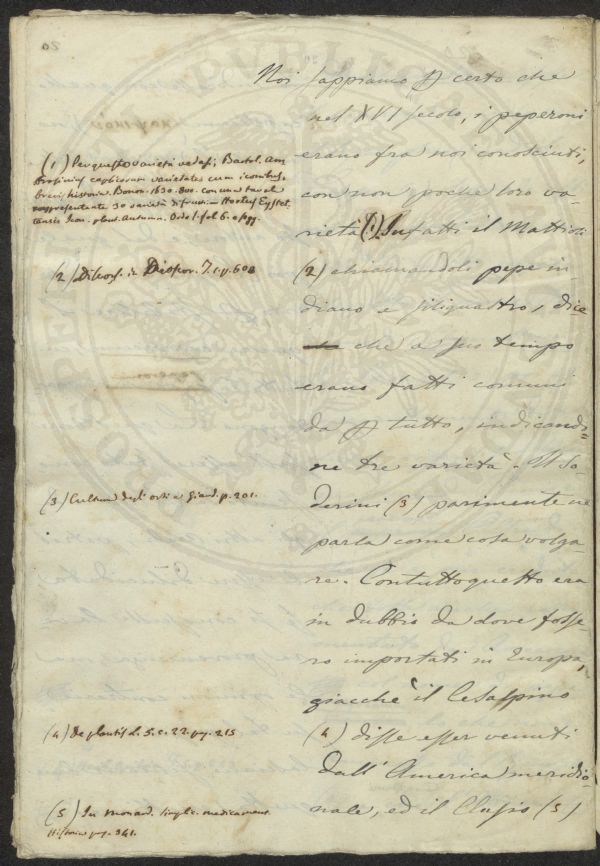 20
Noi sappiamo p certo che
nel XVI secolo, i peperoni
erano fra noi conosciuti,
con non poche loro va-
rietà (1). Infatti il Mattioli
(2) chiamandoli pepe in-
diano e siliquastro, dice
che a suo tempo
erano fatti comuni
da p tutto, indicando-
ne tre varietà. Il So-
derini (3) parimente ne
parla come cosa volga-
re. Contuttoquesto era
in dubbio da dove fosse-
ro importati in Europa,
giacchè il Cesalpino
(4) disse esser venuti
dall'America meridio-
nale, ed il Clusio (5)
(1) Per queste varietà vedasi, Bartol. Am
brosinius capsicorum varietates cum iconibus,
brevis historia. Bonon. 1630. con una tavola
rappresentante 30 varietà di frutti. Hortus Eystet
tensis Icon. plant. Autumn. Ordo 1. fol 6. e segg.
(2) Discors. in Dioscor. p. 608
(3) Cultura degli orti e Giard. p. 201.
(4) De plantis L. 5. c. 22. pag. 215
(5) In monard. simplic. medicament.
Historia pag. 341.